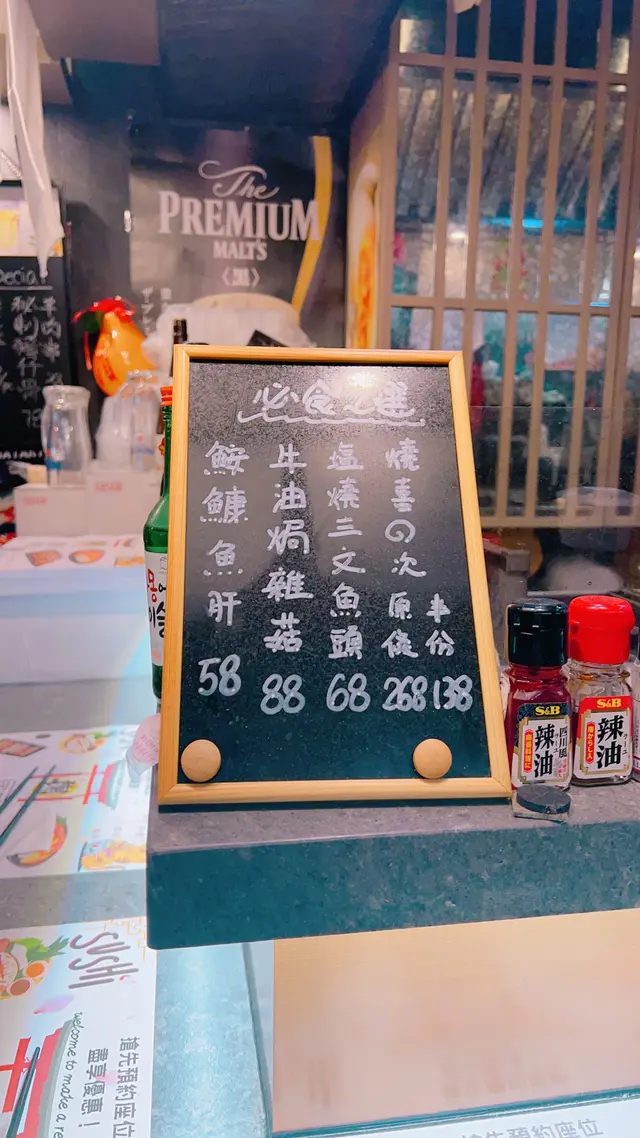 The
PREMIUM
MALT'S
〈黒〉
必食之選
燒喜の次原條 268
半份 138
塩燒三文魚頭 68
牛油焗雜菇 88
鮟鱇魚肝 58
S&B
四川風
辣油
S&B
辣油
SUSHI
welcome to make a re
搶先預約座位
盡享優惠！
搶先預約座位